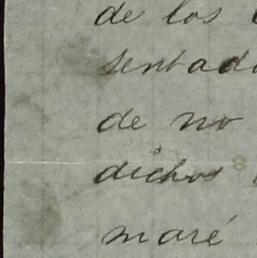 de los
sentad
de no
dichos
maré